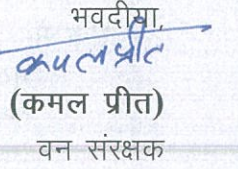 भवदीया,
कमलप्रीत
(कमल प्रीत)
वन संरक्षक